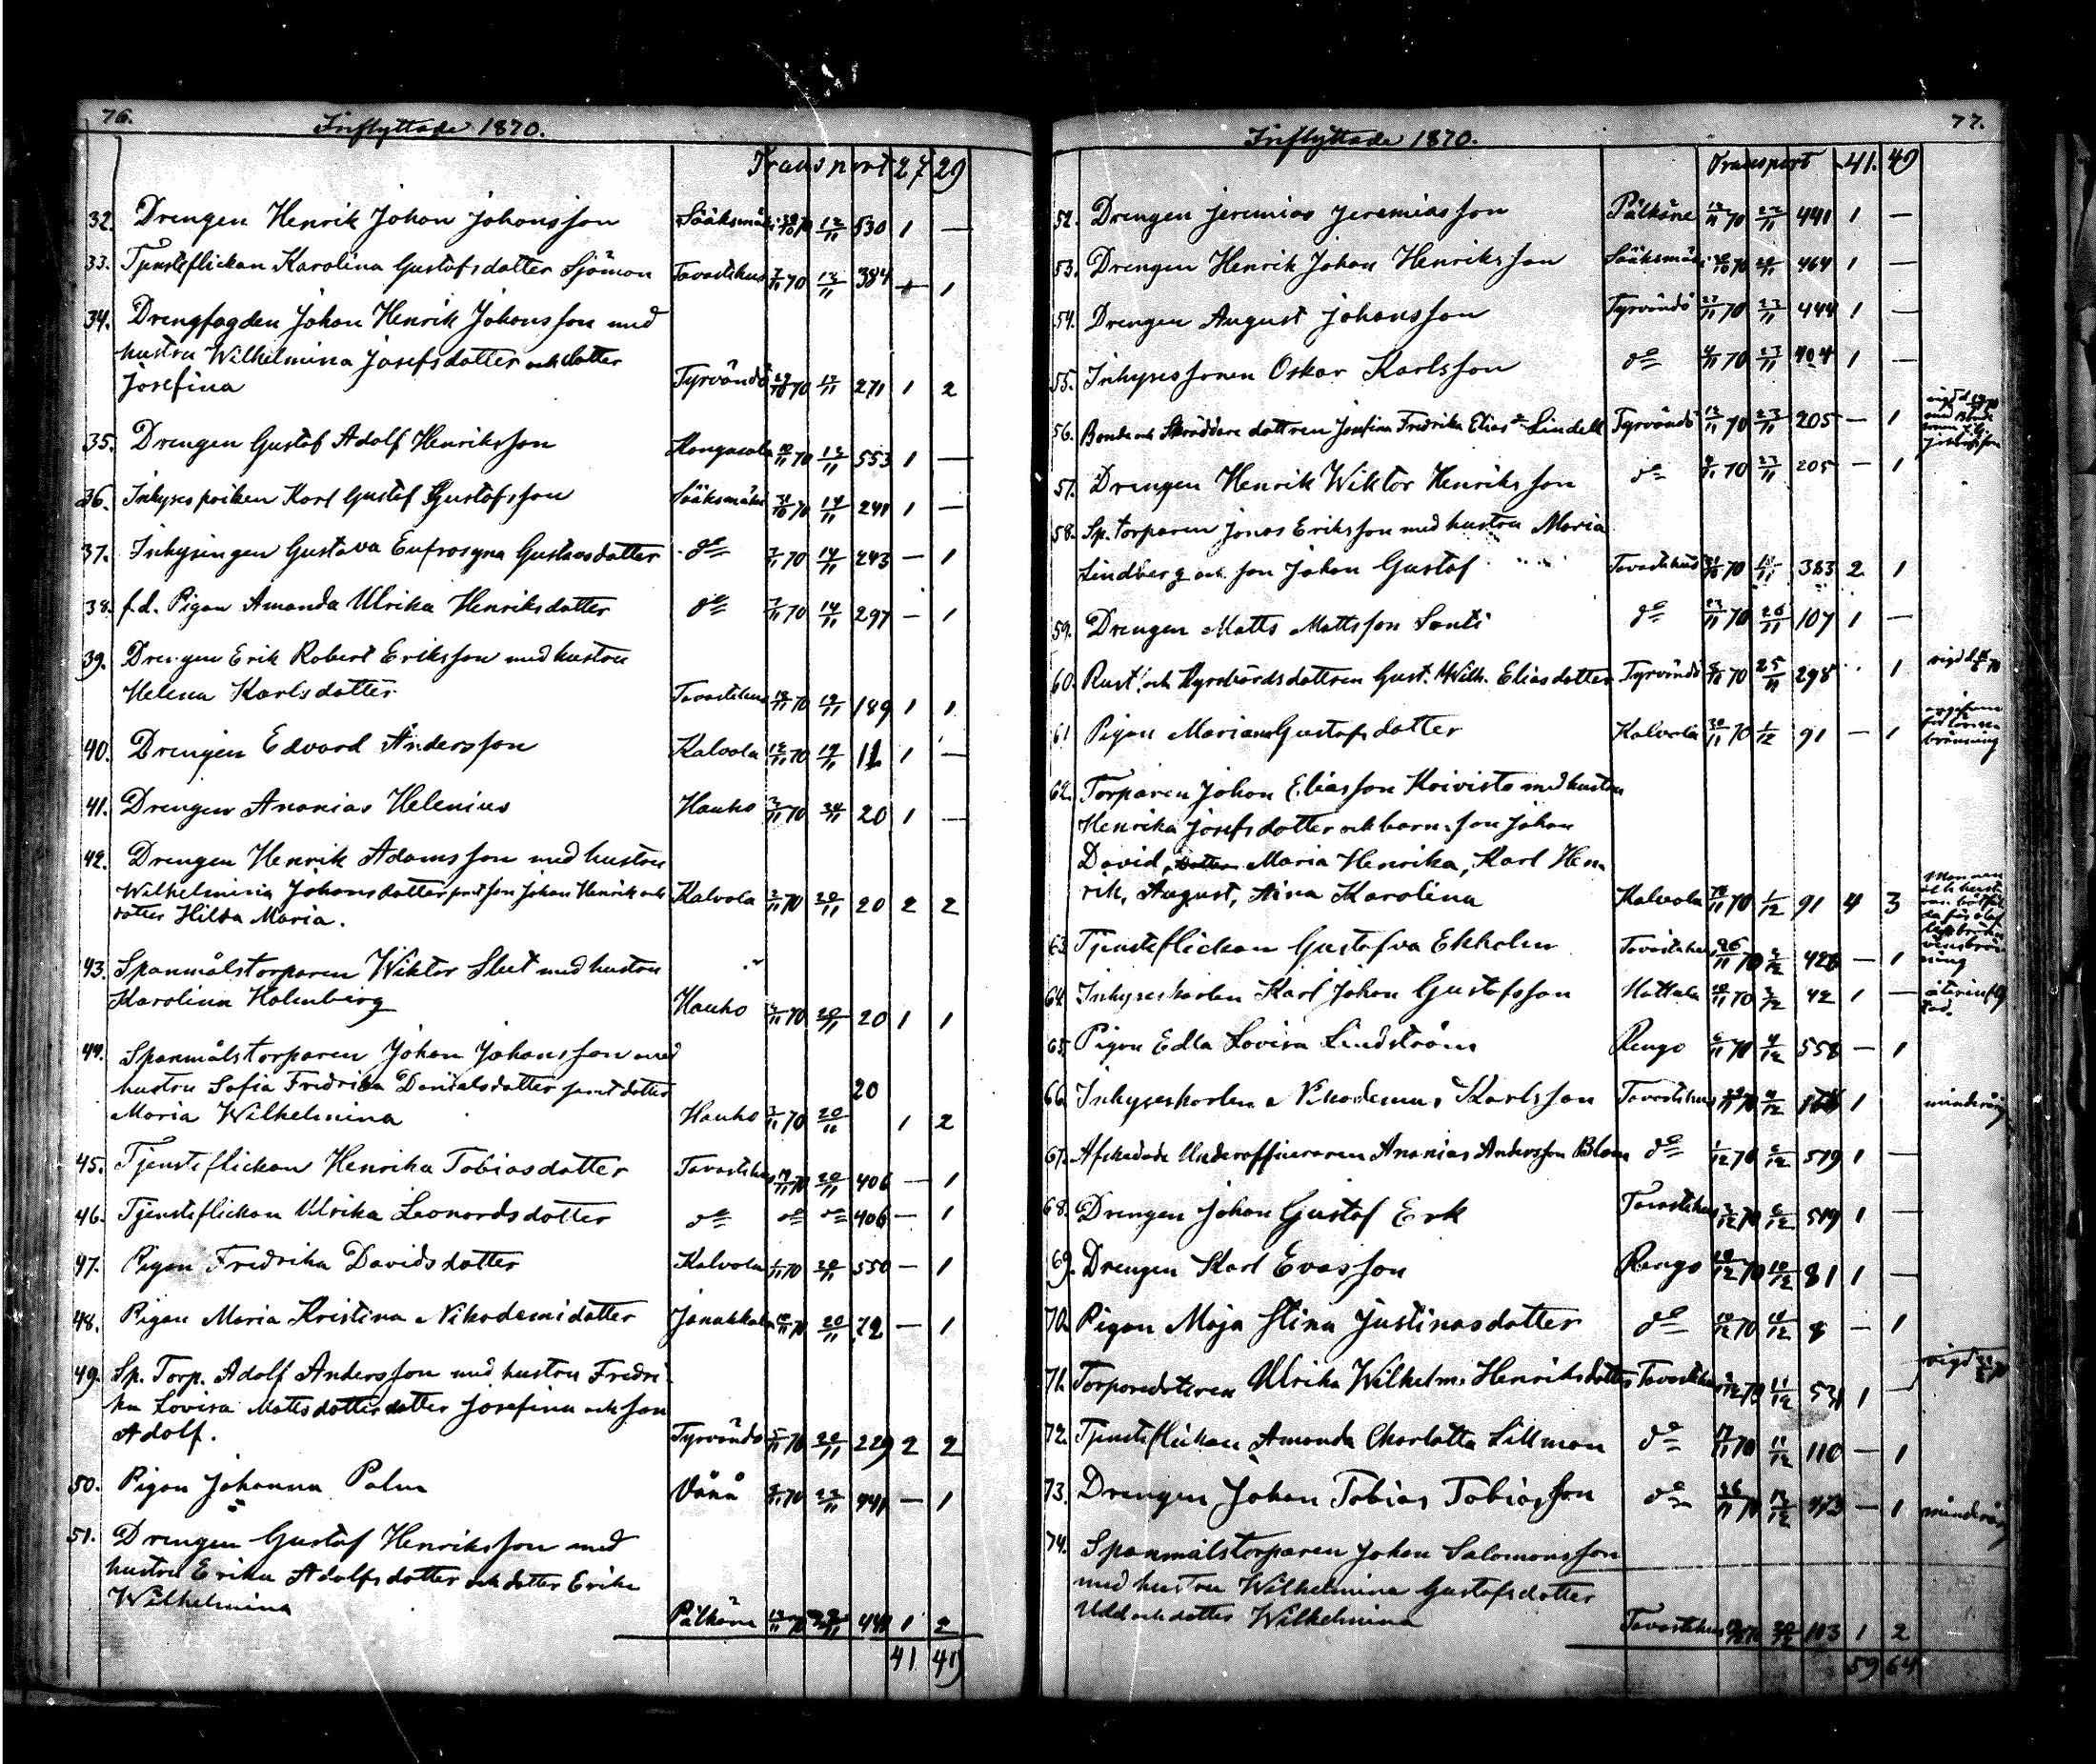 76.
Inflyttade 1870.
Transport 27 29
32. Drengen Henrik Johan Johansson Sääksmäki 70 12/11 530 1 —
33. Tjensteflickan Karolina Gustafsdotter Sjöman Tavastehus 7/11 70 12/11 384 — 1
34. Drengfogden Johan Henrik Johansson med
hustru Wilhelmina Josefsdotter och dotter
Josefina Tyrvändö 29/10 70 12/11 271 1 2
35. Drengen Gustaf Adolf Henriksson Kangasala 10/11 70 12/11 553 1 —
36. Inhysespoiken Karl Gustaf Gustafsson Sääksmäki 31/10 70 14/11 241 1 —
37. Inhysingen Gustava Eufrosyna Gustavsdotter do 7/11 70 14/11 243 — 1
38. f.d. Pigan Amanda Ulrika Henriksdotter do 7/11 70 14/11 297 — 1
39. Drengen Erik Robert Eriksson med hustru
Helena Karlsdotter Tavastehus 70 19/11 189 1 1
40. Drengen Edvard Andersson Kalvola 70 19/11 11 1 —
41. Drengen Ananias Helenius Hauho 70 20 1 —
42. Drengen Henrik Adamsson med hustru
Wilhelmina Johansdotter samt son Johan Henrik och
dotter Hilda Maria. Kalvola 2/11 70 20/11 20 2 2
43. Spanmålstorparen Wiktor Slut med hustru
Karolina Holmberg Hauho 70 20/11 20 1 1
44. Spanmålstorparen Johan Johansson med
hustru Sofia Fredrika Danielsdotter samt dotter 20
Maria Wilhelmina Hauho 70 20/11 1 2
45. Tjensteflickan Henrika Tobiasdotter Tavastehus 70 20/11 406 — 1
46. Tjensteflickan Ulrika Leonardsdotter do do do 406 — 1
47. Pigan Fredrika Davidsdotter Kalvola 70 20/11 550 — 1
48. Pigan Maria Kristina Nikodemidotter Janakkala 70 20/11 72 — 1
49. Sp. Torp. Adolf Andersson med hustru Fredri-
ka Lovisa Mattsdotter dotter Josefina och son
Adolf. Tyrvändö 5/11 70 229 2 2
50. Pigan Johanna Palm Vånå 70 441 — 1
51. Drengen Gustaf Henriksson med
hustru Erika Adolfsdotter och dotter Erika
Wilhelmina Pälkäne 70 441 1 2
41 49
77.
Inflyttade 1870.
Transport 41. 49
52. Drengen Jeremias Jeremiasson Pälkäne 70 441 1 —
53. Drengen Henrik Johan Henriksson Sääksmäki 70 464 1 —
54. Drengen August Johansson Tyrvändö 70 23/11 444 1 —
55. Inhysessonen Oskar Karlsson do 70 23/11 404 1 —
56. Bonde och Skräddare dottren Josefina Fredrika Eliasdr Lindell Tyrvändö 12/11 70 23/11 205 — 1
57. Drengen Henrik Wiktor Henriksson do 70 23/11 205 — 1
58. Sp. torparen Jonas Eriksson med hustru Maria
Lindberg och son Johan Gustaf Tavastehus 70 383 2 1
59. Drengen Matts Mattsson Santi do 70 26/11 107 1 —
60. Rust. och Kyrkvärdsdottren Gust. Wilh. Eliasdotter Tyrvändö 70 25/11 298 1
61 Pigan Mariana Gustafsdotter Kalvola 30/11 70 1/12 91 — 1
62. Torparen Johan Eliasson Koivisto med hustru
Henrika Josefsdotter och barn: son Johan
David, Maria Henrika, Karl Hen-
rik, August, Aina Karolina Kalvola 70 1/12 91 4 3
63. Tjensteflickan Gustafva Ekholm Tavastehus 26/11 70 2/12 426 — 1
64. Inhyseskarlen Karl Johan Gustafsson Hattula 70 3/12 42 1 — återinflyt
tad.
65. Pigan Edla Lovisa Lindström Rengo 70 4/12 558 — 1
66. Inhyseskarlen Nikodemus Karlsson Tavastehus 70 1 minderårig
67. Afskedade Underofficeraren Ananias Andersson Blom do 1/12 70 6/12 519 1 —
68. Drengen Johan Gustaf Erk Tavastehus 70 6/12 519 1 —
69. Drengen Karl Evasson Rengo 10/12 70 10/12 81 1 —
70. Pigan Maja Stina Justinasdotter do 10/12 70 8 — 1
71. Torparedottren Ulrika Wilhelm. Henriksdotter Tavastehus 70 11/12 531 1 —
72. Tjensteflickan Amanda Charlotta Lillman do 70 11/12 110 — 1
73. Drengen Johan Tobias Tobiasson do 26/11 70 — 1 minderårig
74. Spanmålstorparen Johan Salomonsson
med hustru Wilhelmina Gustafsdotter
Udd och dotter Wilhelmina Tavastehus 113 1 2
59 64